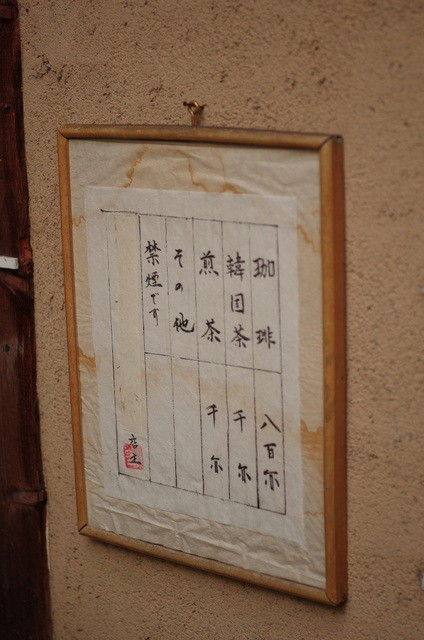 珈琲 八百尓
韓国茶 千尓
煎茶 千尓
その他
禁煙です
店主